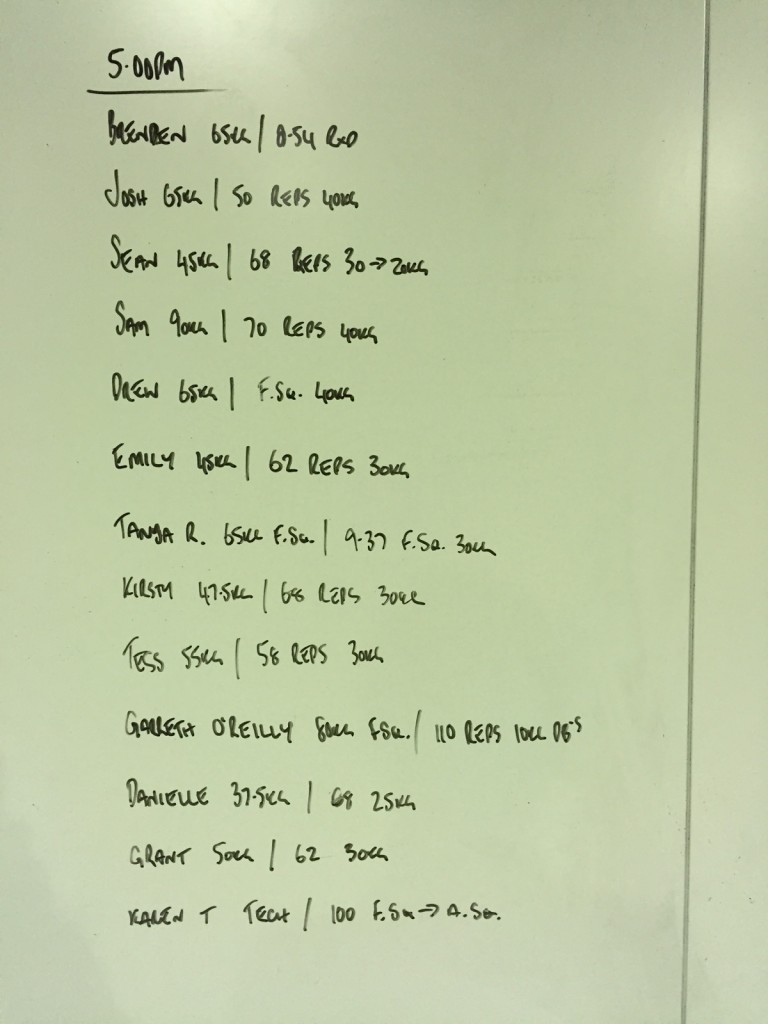 5.00PM
BRENDEN 65KG / 8.54 RXD
JOSH 65KG / 50 REPS 40KG
SEAN 45KG / 68 REPS 30→20KG
SAM 90KG / 70 REPS 40KG
DREW 65KG / F.SQ. 40KG
EMILY 45KG / 62 REPS 30KG
TANYA R. 65KG F.SQ. / 9.37 F.SQ. 30KG
KIRSTY 47.5KG / 68 REPS 30KG
TESS 55KG / 58 REPS 30KG
GARRETH O'REILLY 80KG F.SQ. / 110 REPS 10KG DB'S
DANIELLE 37.5KG / 68 25KG
GRANT 50KG / 62 30KG
KAREN T TECH / 100 F.SQ → A.SQ.